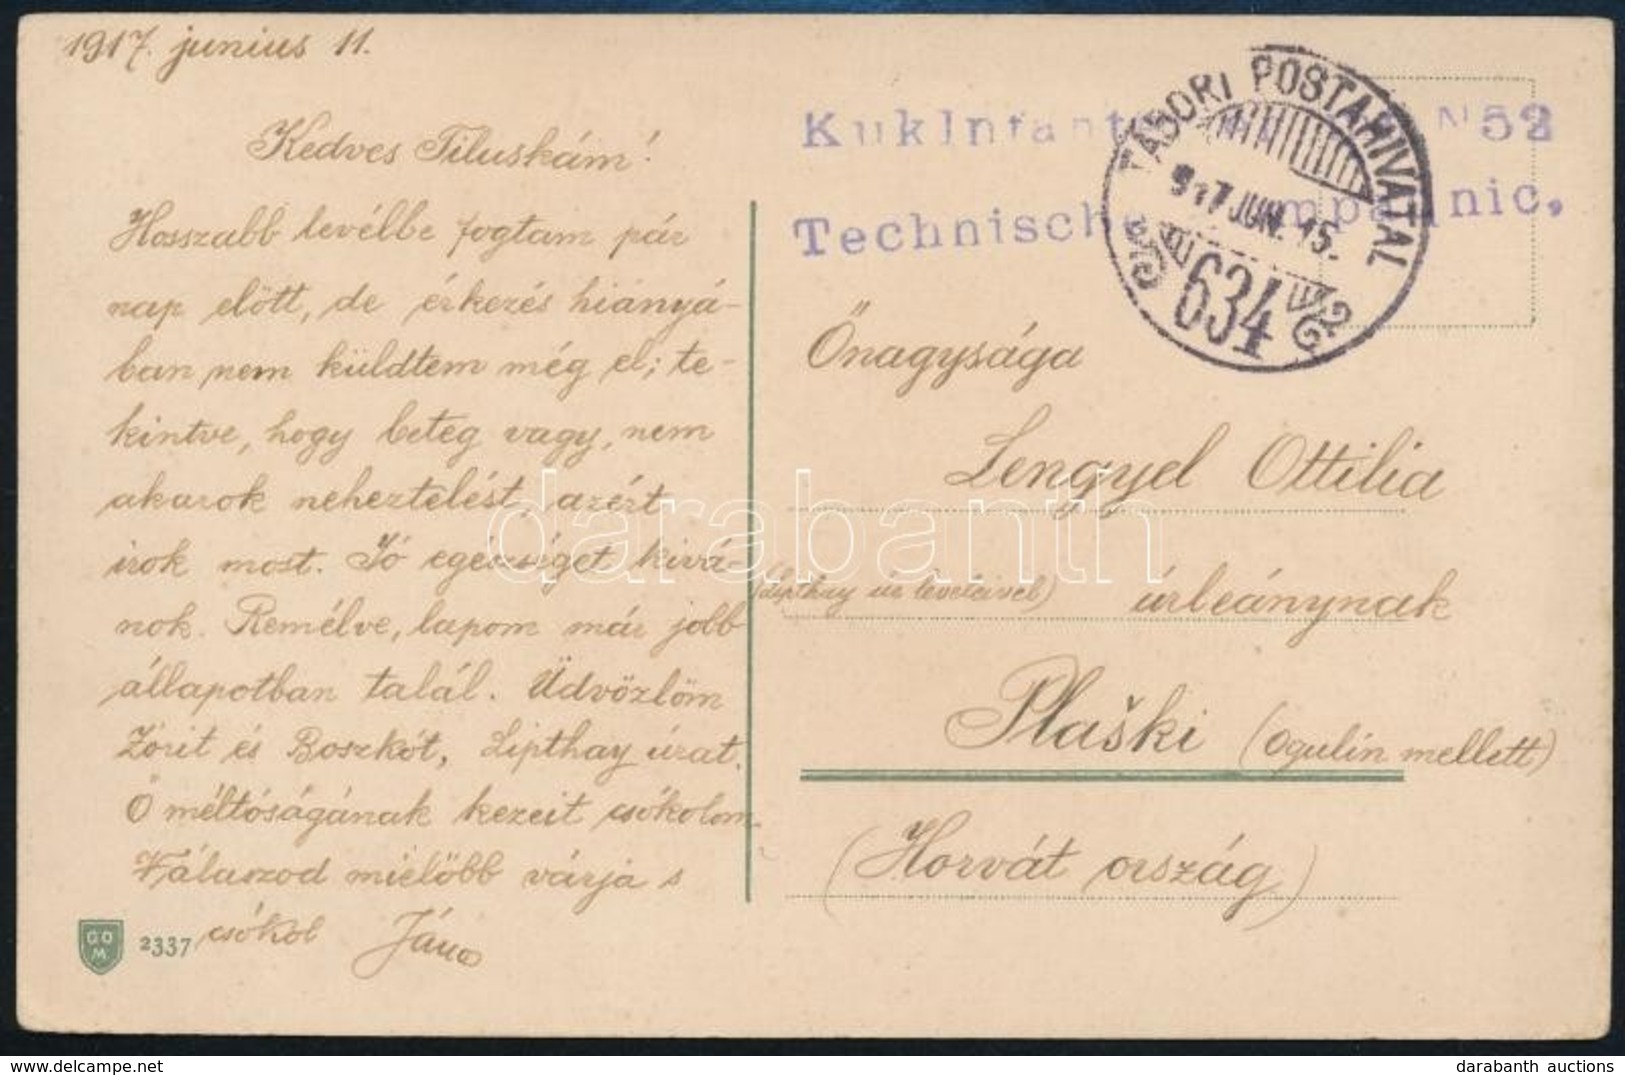 1917. junius 11.
Kedves Tiluskám!
Hosszabb levélbe fogtam pár
nap elött, de érkezés hiányá-
ban nem küldtem még el; te-
kintve, hogy beteg vagy, nem
akarok neheztelést, azért
irok most. Jó egészséget kivá-
nok. Remélve, lapom már jobb
állapotban talál. Üdvözlöm
Zórit és Boszkót, Lipthay úrat.
Ö méltóságának kezeit csókolom.
Válaszod mielöbb várja s
csókol János
GO
M
2337
KukInfant N 52
Technische ompagnic,
TÁBORI POSTAHIVATAL
917 JUN. 15.
634
Őnagysága
Lengyel Ottilia
(Lipthay úr leveleivel) úrleánynak
Plaški (Ogulin mellett)
(Horvát ország)
darabanth
darabanth auctions